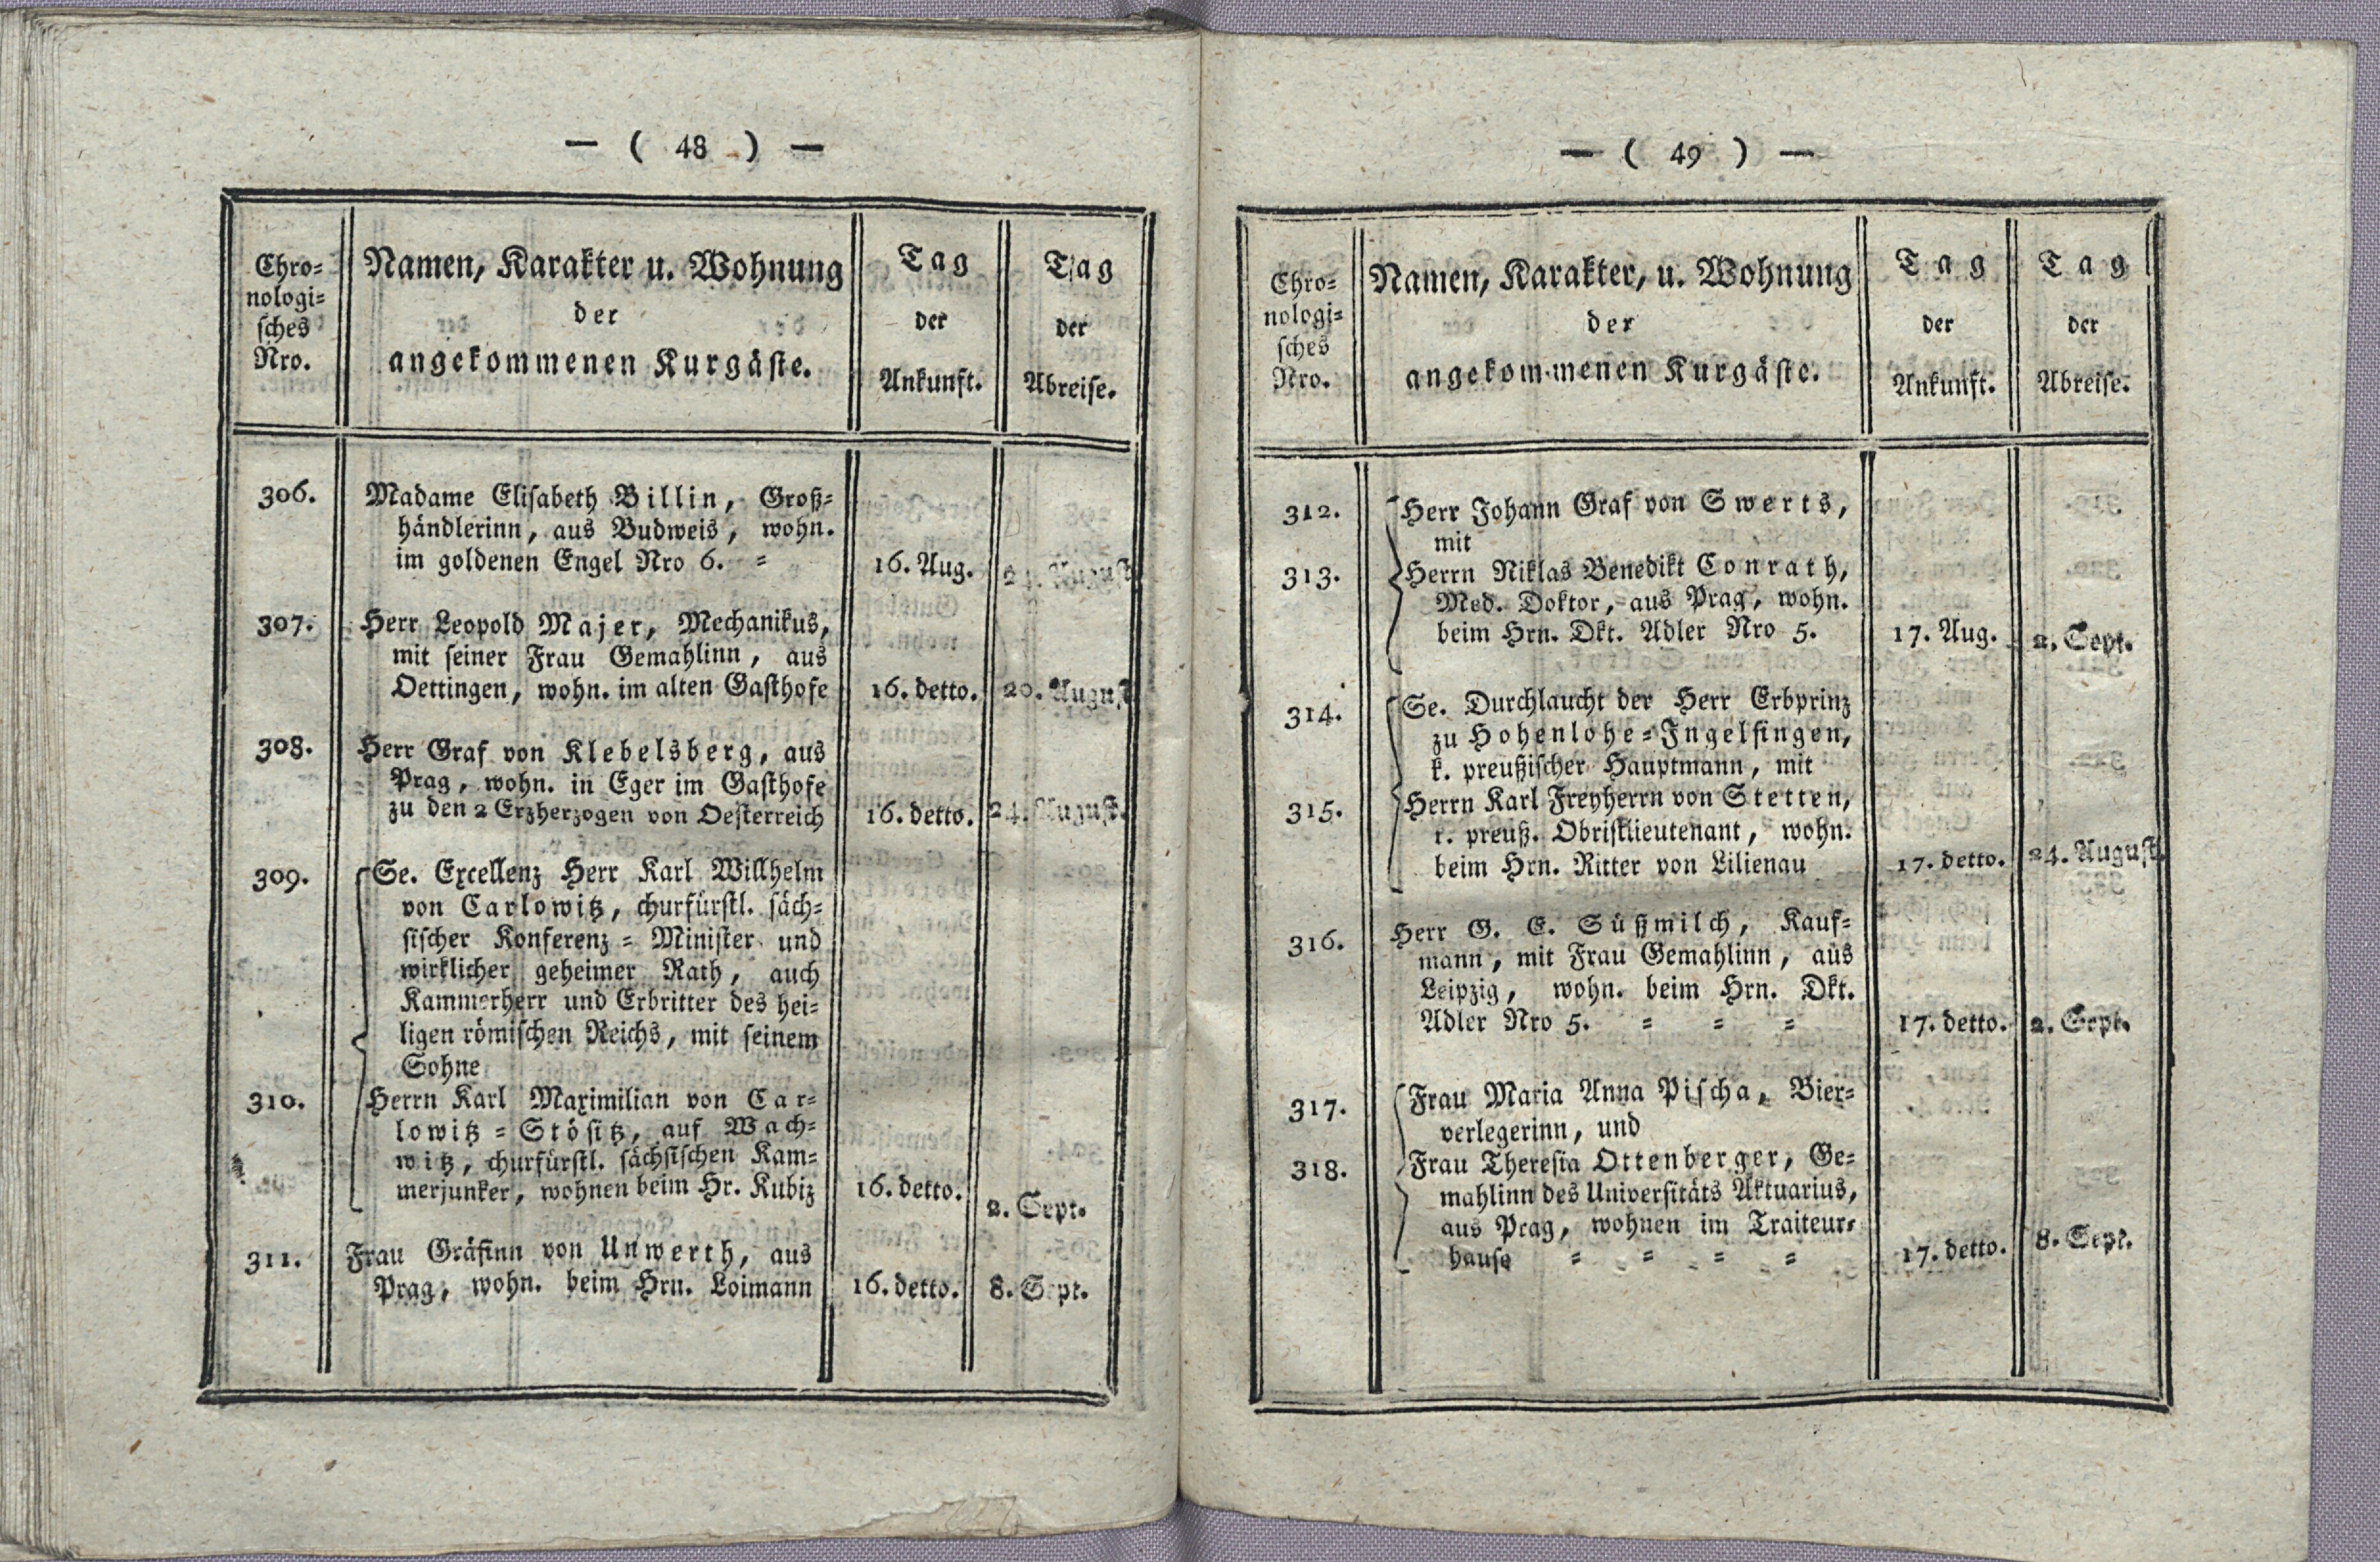 — ( 48 ) —
Chro-
nologi-
sches
Nro.
Namen, Karakter u. Wohnung
der
angekommenen Kurgäste.
Tag
der
Ankunft.
Tag
der
Abreise.
306. Madame Elisabeth Billin, Groß-
händlerinn, aus Budweis, wohn.
im goldenen Engel Nro 6. = 16. Aug. 24. August
307. Herr Leopold Majer, Mechanikus,
mit seiner Frau Gemahlinn, aus
Oettingen, wohn. im alten Gasthofe 16. detto. 20. August
308. Herr Graf von Klebelsberg, aus
Prag, wohn. in Eger im Gasthofe
zu den 2 Erzherzogen von Oesterreich 16. detto. 24. August.
309. Se. Excellenz Herr Karl Willhelm
von Carlowitz, churfürstl. säch-
sischer Konferenz-Minister und
wirklicher geheimer Rath, auch
Kammerherr und Erbritter des hei-
ligen römischen Reichs, mit seinem
Sohne
310. Herrn Karl Maximilian von Car-
lowitz-Stösitz, auf Wach-
witz, churfürstl. sächsischen Kam-
merjunker, wohnen beim Hr. Kubiz 16. detto. 2. Sept.
311. Frau Gräfinn von Unwerth, aus
Prag, wohn. beim Hrn. Loimann 16. detto. 8. Sept.
— ( 49 ) —
Chro-
nologi-
sches
Nro.
Namen, Karakter, u. Wohnung
der
angekommenen Kurgäste.
Tag
der
Ankunft.
Tag
der
Abreise.
312. Herr Johann Graf von Swerts,
mit
313. Herrn Niklas Benedikt Conrath,
Med. Doktor, aus Prag, wohn.
beim Hrn. Dkt. Adler Nro 5. 17. Aug. 2. Sept.
314. Se. Durchlaucht der Herr Erbprinz
zu Hohenlohe-Ingelfingen,
k. preußischer Hauptmann, mit
315. Herrn Karl Freyherrn von Stetten,
r. preuß. Obristlieutenant, wohn.
beim Hrn. Ritter von Lilienau 17. detto. 24. August.
316. Herr G. E. Süßmilch, Kauf-
mann, mit Frau Gemahlinn, aus
Leipzig, wohn. beim Hrn. Dkt.
Adler Nro 5. = = = 17. detto. 2. Sept.
317. Frau Maria Anna Pischa, Bier-
verlegerinn, und
318. Frau Theresia Ottenberger, Ge-
mahlinn des Universitäts Aktuarius,
aus Prag, wohnen im Traiteur-
hause = = = = 17. detto. 8. Sept.